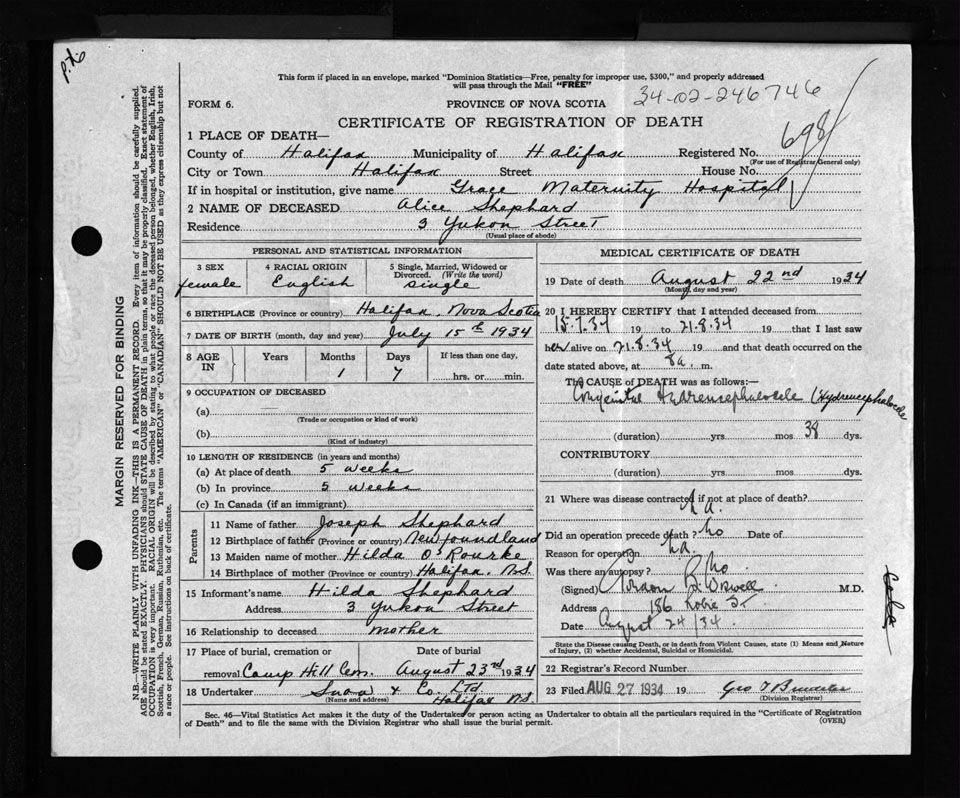 p.x.6
This form if placed in an envelope, marked "Dominion Statistics—Free, penalty for improper use, $300," and properly addressed
will pass through the Mail "FREE"
34-02-246746
FORM 6.
PROVINCE OF NOVA SCOTIA
CERTIFICATE OF REGISTRATION OF DEATH
698
1 PLACE OF DEATH—
County of Halifax Municipality of Halifax Registered No.
(For use of Registrar General only)
City or Town Halifax Street House No.
If in hospital or institution, give name Grace Maternity Hospital
2 NAME OF DECEASED Alice Shephard
Residence 3 Yukon Street
(Usual place of abode)
PERSONAL AND STATISTICAL INFORMATION
3 SEX
female
4 RACIAL ORIGIN
English
5 Single, Married, Widowed or
Divorced. (Write the word)
single
6 BIRTHPLACE (Province or country) Halifax. Nova Scotia
7 DATE OF BIRTH (month, day and year) July 15th 1934
8 AGE IN
Years Months Days If less than one day,
1 7 hrs. or min.
9 OCCUPATION OF DECEASED
(a) —
(Trade or occupation or kind of work)
(b)
(Kind of industry)
10 LENGTH OF RESIDENCE (in years and months)
(a) At place of death 5 weeks
(b) In province 5 weeks
(c) In Canada (if an immigrant)
Parents
11 Name of father Joseph Shephard
12 Birthplace of father (Province or country) Newfoundland
13 Maiden name of mother Hilda O'Rourke
14 Birthplace of mother (Province or country) Halifax. N.S.
15 Informant's name Hilda Shephard
Address 3 Yukon Street
16 Relationship to deceased mother
17 Place of burial, cremation or Date of burial
removal Camp Hill Cem. August 23rd 1934
18 Undertaker Snow & Co. Ltd
(Name and address) Halifax N.S.
MEDICAL CERTIFICATE OF DEATH
19 Date of death August 22nd 1934
(Month, day and year)
20 I HEREBY CERTIFY that I attended deceased from
15.7.34 19 to 21.8.34 19 that I last saw
her alive on 21.8.34 19 and that death occurred on the
date stated above, at 8a. m.
The CAUSE OF DEATH was as follows:—
Congenital Hydrencephalocele (Hydrencephalocele
(duration) yrs. mos 38 dys.
CONTRIBUTORY
(duration) yrs. mos. dys.
21 Where was disease contracted if not at place of death?
n.a.
Did an operation precede death? no Date of
Reason for operation na.
Was there an autopsy? No
(Signed) Gordon B. Wiswell M.D.
Address 186 Robie St.
Date August 24/34
State the Disease causing Death, or in death from Violent Causes, state (1) Means and Nature
of Injury, (2) whether Accidental, Suicidal or Homicidal.
22 Registrar's Record Number
23 Filed AUG 27 1934 19 Geo
(Division Registrar)
Sec. 46—Vital Statistics Act makes it the duty of the Undertaker or person acting as Undertaker to obtain all the particulars required in the "Certificate of Registration
of Death" and to file the same with the Division Registrar who shall issue the burial permit.
(OVER)
MARGIN RESERVED FOR BINDING
N.B.—WRITE PLAINLY WITH UNFADING INK—THIS IS A PERMANENT RECORD. Every item of information should be carefully supplied.
AGE should be stated EXACTLY. PHYSICIANS should STATE CAUSE OF DEATH in plain terms, so that it may be properly classified. Exact statement of
OCCUPATION is very important. RACIAL ORIGIN will be described by stating to what people or race the deceased person belonged, whether English, Irish,
Scottish, French, German, Russian, Ruthenian, etc. The terms "AMERICAN" or "CANADIAN" SHOULD NOT BE USED as they express citizenship but not
a race or people. See instructions on back of certificate.